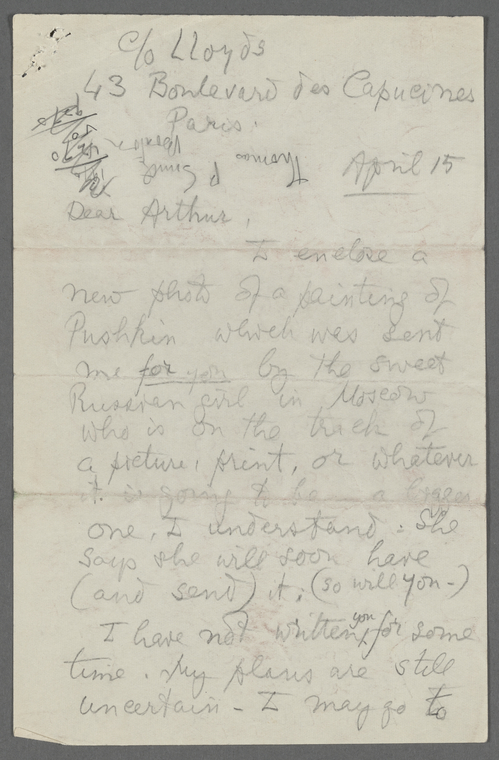 c/o Lloyds
43 Boulevard des Capucines
Paris.
April 15
Thomas P Smith
Dear Arthur,
I enclose a
new photo of a painting of
Pushkin which was sent
me for you by the sweet
Russian girl in Moscow
who is on the track of
a picture, print, or whatever
it is going to be – a larger
one, I understand. She
says she will soon have
(and send) it. (so will you –)
I have not written you for some
time. My plans are still
uncertain – I may go to